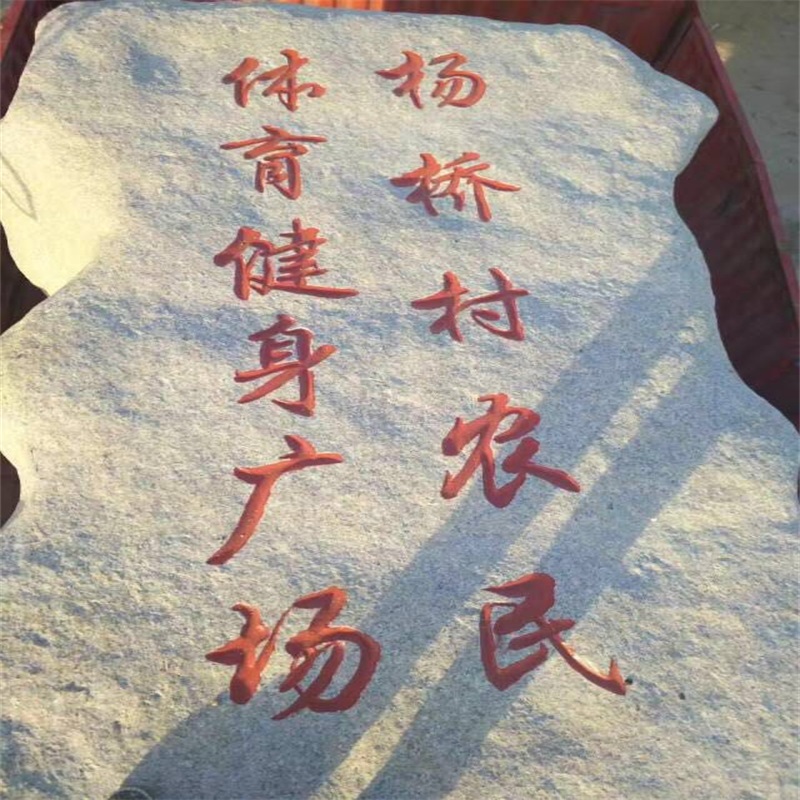 杨桥村农民
体育健身广场